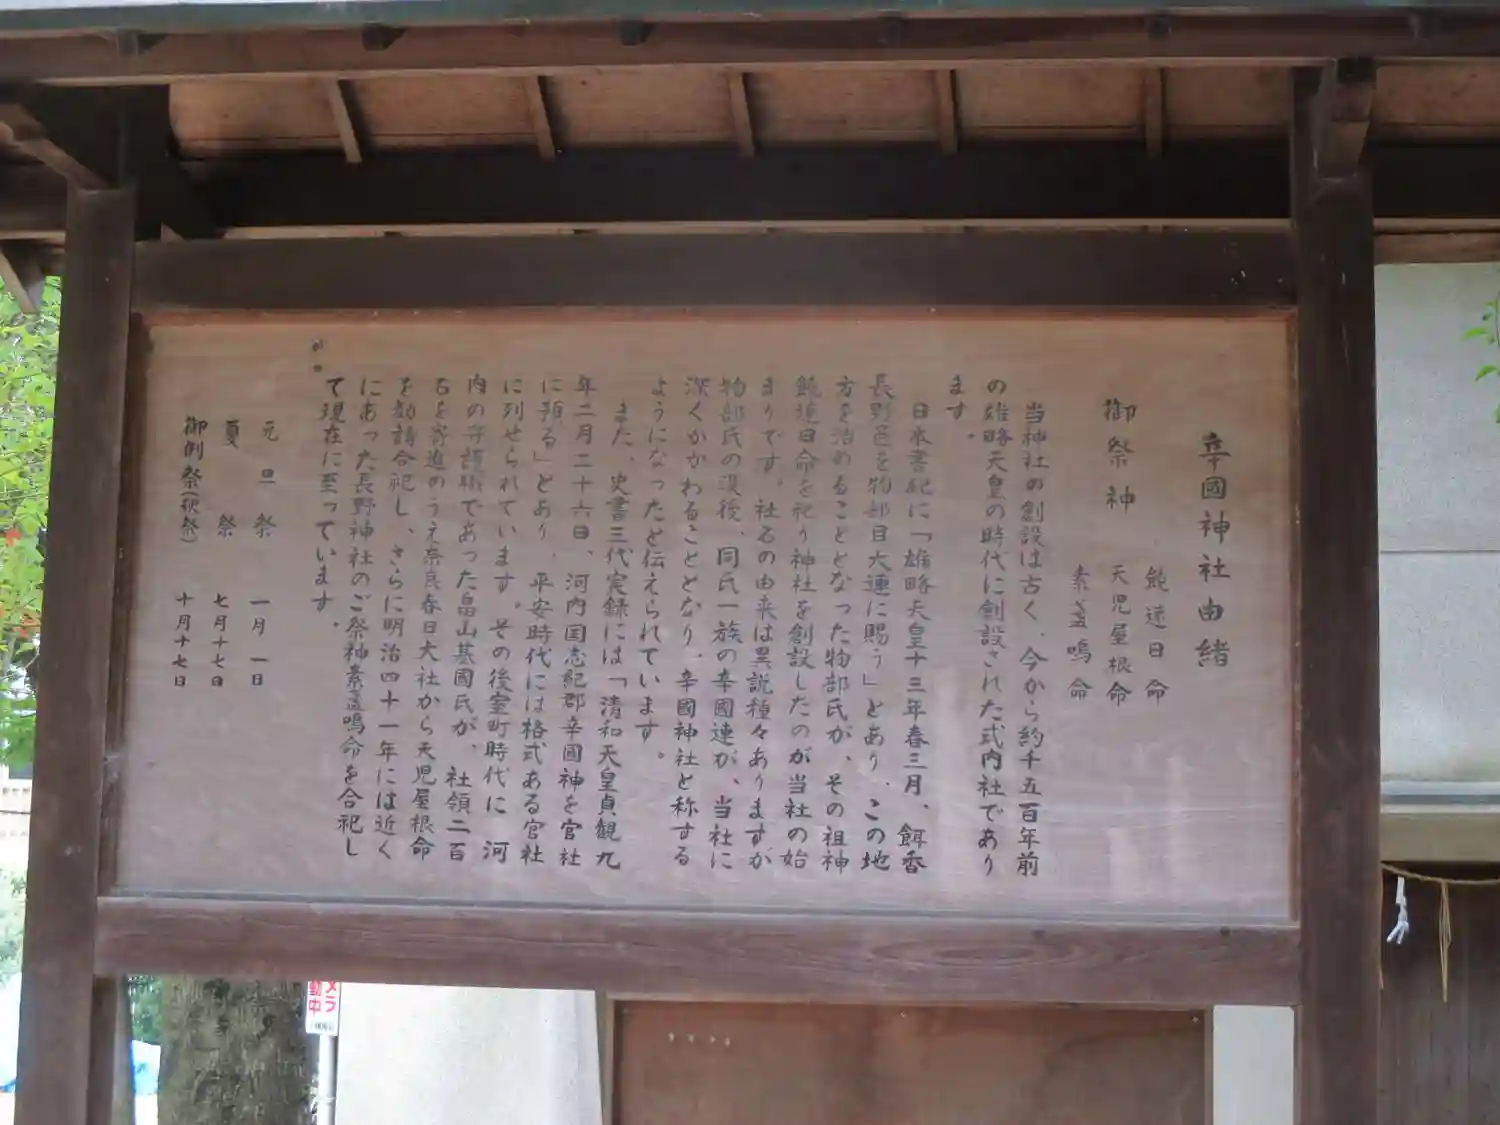 辛國神社由緒
御祭神
饒速日命
天児屋根命
素盞嗚命
当神社の創設は古く、今から約千五百年前
の雄略天皇の時代に創設された式内社であり
ます。
日本書紀に「雄略天皇十三年春三月、餌香
長野邑を物部目大連に賜う」とあり、この地
方を治めることとなった物部氏が、その祖神
饒速日命を祀り神社を創設したのが当社の始
まりです。社名の由来は異説種々ありますが
物部氏の没後、同氏一族の辛國連が、当社に
深くかかわることとなり、辛國神社と称する
ようになったと伝えられています。
また、史書三代実録には「清和天皇貞観九
年二月二十六日、河内国志紀郡辛國神を官社
に預る」とあり、平安時代には格式ある官社
に列せられています。その後室町時代に 河
内の守護職であった畠山基國氏が、社領二百
石を寄進のうえ奈良春日大社から天児屋根命
を勧請合祀し、さらに明治四十一年には近く
にあった長野神社のご祭神素盞嗚命を合祀し
て現在に至っています。
元旦祭 一月一日
夏祭 七月十七日
御例祭(秋祭) 十月十七日
メラ
動中